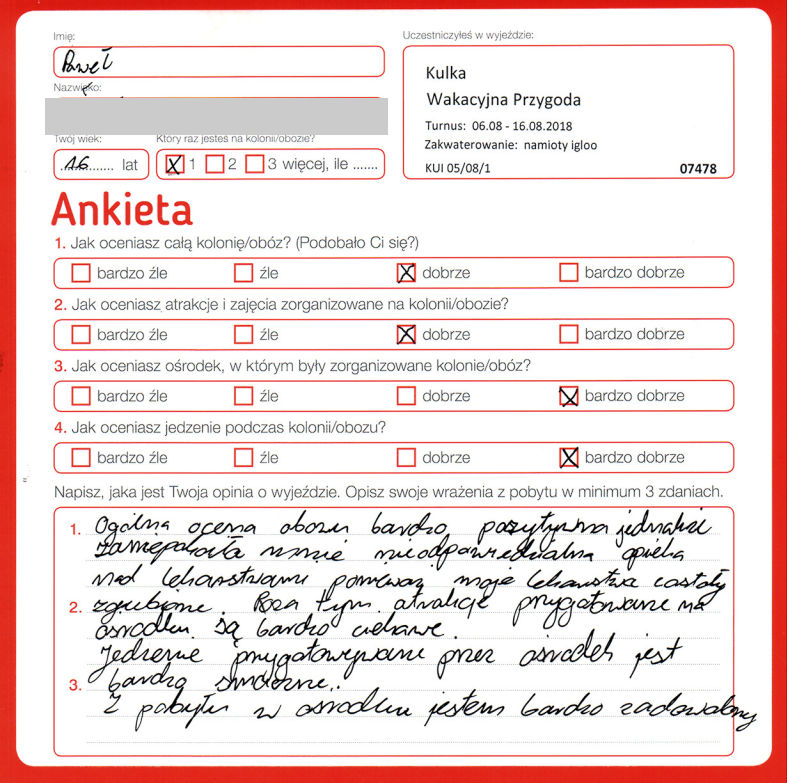 Imię:
Paweł
Nazwisko:
Twój wiek:
16 lat
Który raz jesteś na kolonii/obozie?
X 1 2 3 więcej, ile .......
Uczestniczyłeś w wyjeździe:
Kulka
Wakacyjna Przygoda
Turnus: 06.08 - 16.08.2018
Zakwaterowanie: namioty igloo
KUI 05/08/1 07478
Ankieta
1. Jak oceniasz całą kolonię/obóz? (Podobało Ci się?)
bardzo źle źle X dobrze bardzo dobrze
2. Jak oceniasz atrakcje i zajęcia zorganizowane na kolonii/obozie?
bardzo źle źle X dobrze bardzo dobrze
3. Jak oceniasz ośrodek, w którym były zorganizowane kolonie/obóz?
bardzo źle źle dobrze X bardzo dobrze
4. Jak oceniasz jedzenie podczas kolonii/obozu?
bardzo źle źle dobrze X bardzo dobrze
Napisz, jaka jest Twoja opinia o wyjeździe. Opisz swoje wrażenia z pobytu w minimum 3 zdaniach.
1. Ogólna ocena obozu bardzo pozytywna jednakże
zaniepokoiła mnie nieodpowiedzialna opieka
nad lekarstwami ponieważ moje lekarstwa zostały
2. zgubione. Poza tym atrakcje przygotowane na
ośrodku są bardzo ciekawe.
Jedzenie przygotowywane przez ośrodek jest
3. bardzo smaczne.
Z pobytu w ośrodku jestem bardzo zadowolony